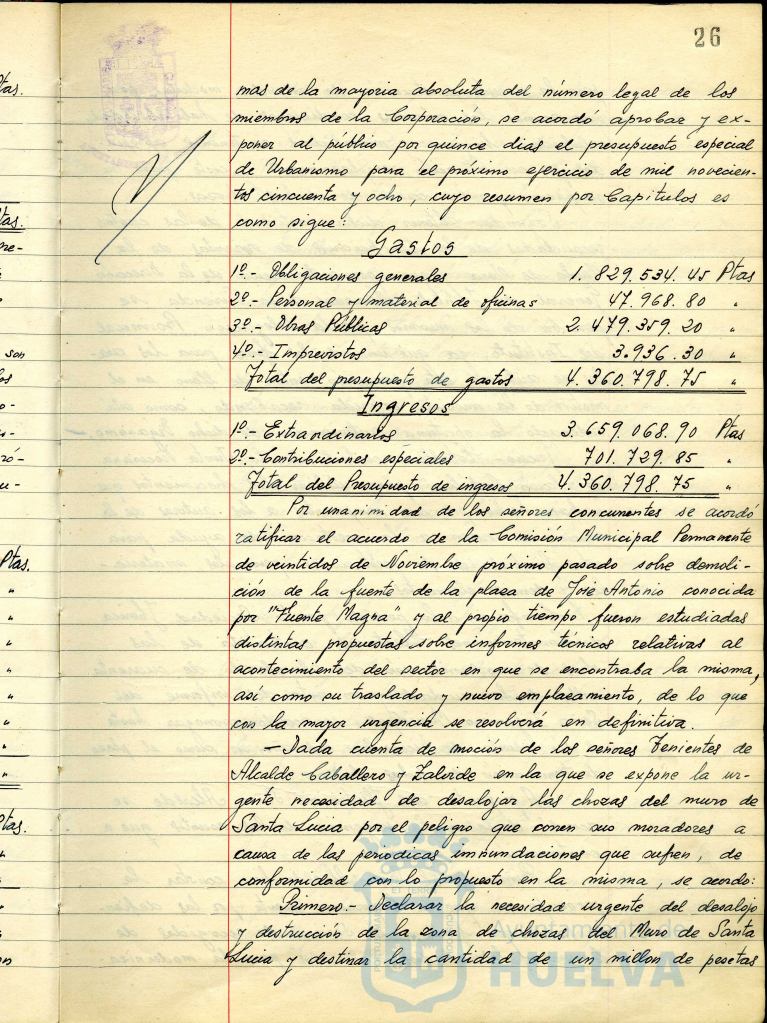 26
mas de la mayoria absoluta del número legal de los
miembros de la Corporación, se acordó aprobar y ex-
poner al público por quince dias el presupuesto especial
de Urbanismo para el próximo ejercicio de mil novecien-
tos cincuenta y ocho, cuyo resumen por Capitulos es
como sigue:
Gastos
1º.- Obligaciones generales 1.829.534.45 Ptas
2º.- Personal y material de oficinas 47.968.80 "
3º.- Obras Públicas 2.479.359.20 "
4º.- Imprevistos 3.936.30 "
Total del presupuesto de gastos 4.360.798.75 "
Ingresos
1º.- Extraordinarios 3.659.068.90 Ptas
2º.- Contribuciones especiales 701.729.85 "
Total del Presupuesto de ingresos 4.360.798.75 "
Por unanimidad de los señores concurrentes se acordó
ratificar el acuerdo de la Comisión Municipal Permanente
de veintidos de Noviembre próximo pasado sobre demoli-
ción de la fuente de la plaza de José Antonio conocida
por "Fuente Magna" y al propio tiempo fueron estudiadas
distintas propuestas sobre informes técnicos relativas al
acontecimiento del sector en que se encontraba la misma,
así como su traslado y nuevo emplazamiento, de lo que
con la mayor urgencia se resolverá en definitiva.
- Dada cuenta de moción de los señores Tenientes de
Alcalde Caballero y Zalvide en la que se expone la ur-
gente necesidad de desalojar las chozas del muro de
Santa Lucia por el peligro que corren sus moradores a
causa de las periodicas inmundaciones que sufren, de
conformidad con lo propuesto en la misma, se acordo:
Primero.- Declarar la necesidad urgente del desalojo
y destrucción de la zona de chozas del Muro de Santa
Lucia y destinar la cantidad de un millon de pesetas
HUELVA